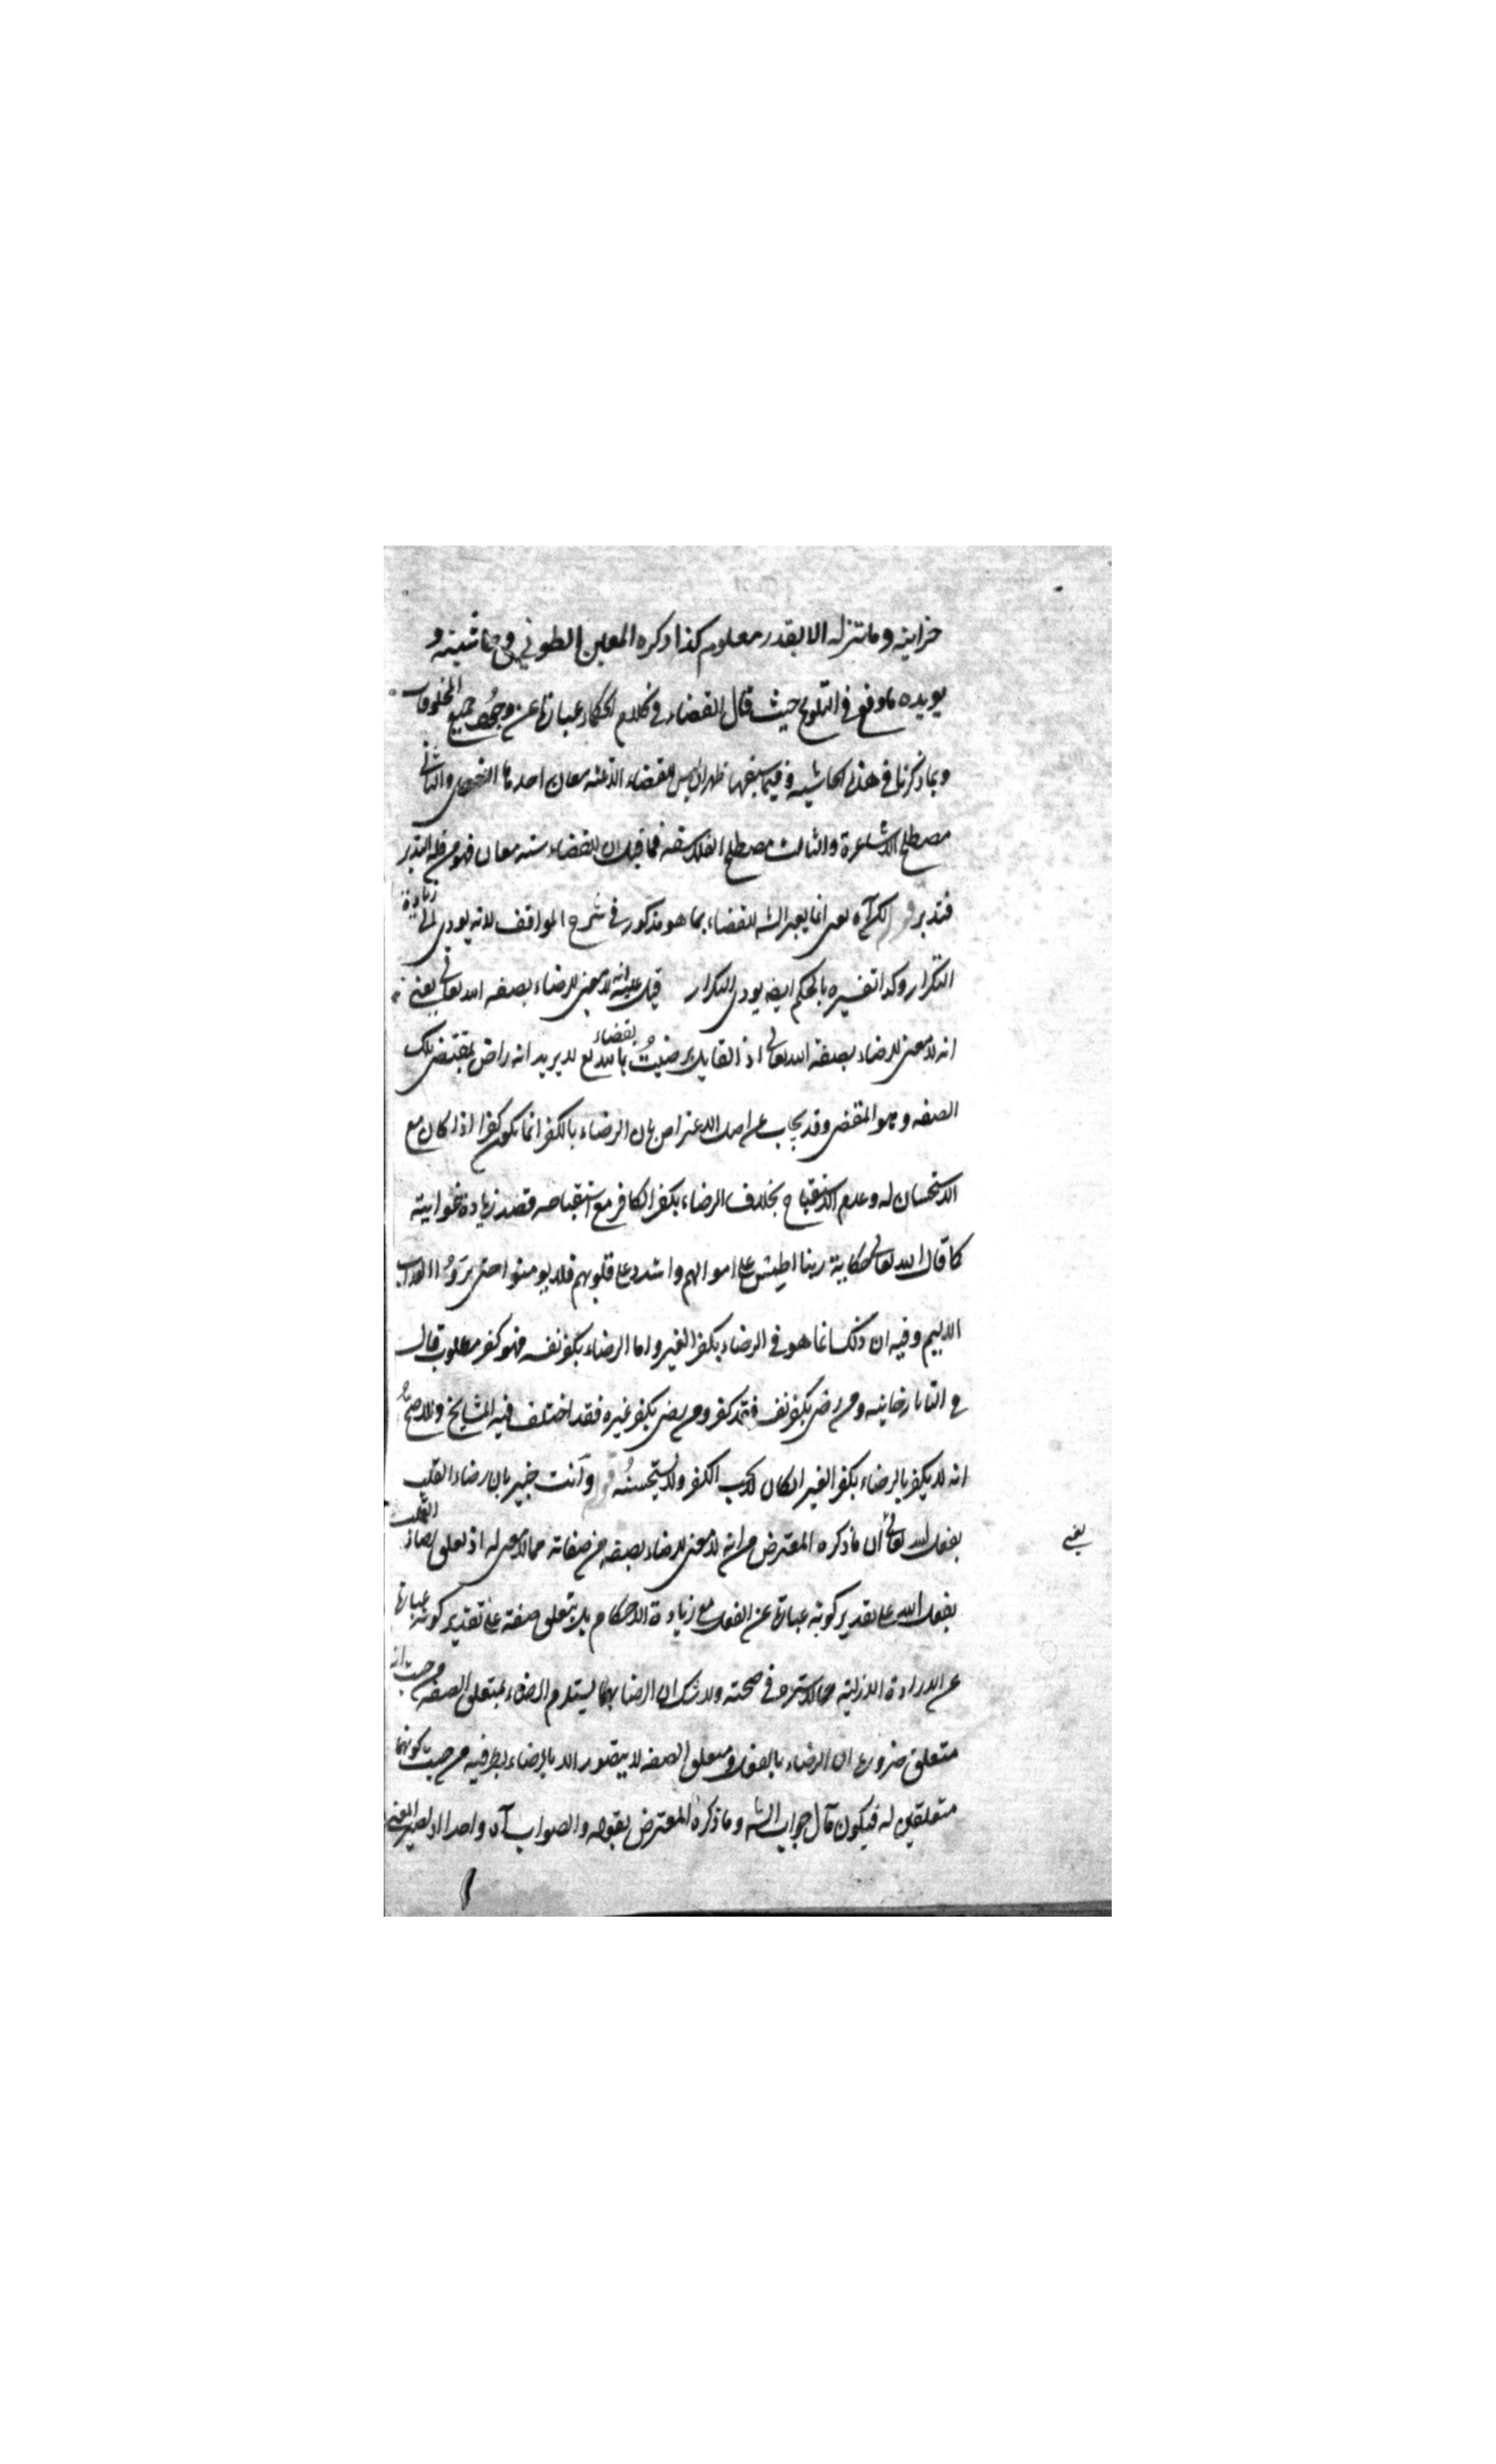 خزاينه وما ننزله الا بقدر معلوم كذا ذكره المعين الطوني في حاشيته و
يويده ما وقع في التلويح حيث قال القضاء في كلام الحكماء عبارة عن وجود جميع المخلوقات
وبما ذكرنا في هذه الحاشيه وفيما سبقها ظهر ان ليس للقضاء الا ثلثه معان احدها اللغوي والثاني
مصطلح الاشاعرة والثالث مصطلح الفلاسفه فما قيل ان للقضاء سته معان فهو من قلة التدبر
فتدبر قوله لكن آه يعني انما يعبر الشه للقضاء بما هو مذكور في شرح المواقف لانه يودي الى زيادة
التكرار وكذا تفسيره بالحكم ايضه يودي التكرار قيل عليه انه لا معنى للرضاء بصفه الله تعالى يعني
انه لا معنى للرضاء بصفة الله تعالى اذ القايل رضيتُ بقضاء الله تع لا يريد انه راض بمقتضى تلك
الصفه وهو المقضي وقد يجاب عن اصل الاعتراض بان الرضاء بالكفر انما يكون كفرا اذا كان مع
الاستحسان له وعدم الاستقباح بخلاف الرضاء بكفر الكافر مع استقباحه قصد زيادة غوايته
كما قال الله تعالى حكاية ربنا اطمس على اموالهم واشدد على قلوبهم فلا يومنوا حتى يَرَوُا العذاب
الاليم وفيه ان ذلك انما هو في الرضاء بكفر الغير واما الرضاء بكفر نفسه فهو كفر مطلوب قال
في التاتارخانيه ومن رضي بكفر نفسه فقد كفر ومن رضي بكفر غيره فقد اختلف فيه المشايخ والاصحُّ
انه لا يكفر بالرضاء بكفر الغير ان كان لا يحب الكفر ولا يستحسنُه قوله وانت خبير بان رضاء القلب
يعني
بفعل الله تعالى ان ما ذكره المعترض من انه لا معنى للرضاء بصفه من صفاته مما لا معنى له اذ تعلق رضاء القلب
بفعل الله على تقدير كونه عبارة عن الفعل مع زيادة الاحكام بل بتعلق صفته على تقدير كونه عبارة
عن الارادة الازلية مما لا سترة في صحته ولا شك ان الرضا بهما يستلزم الرضاء بمتعلق الصفه من حيث انه
متعلق ضرورة ان الرضاء بالفعل وتعلق الصفه لا يتصور الا بالرضاء بطرفيه من حيث كونهما
متعلقين له فيكون مآل جواب الشه وما ذكره المعترض بقوله والصواب آه واحدا اذ يصير المعنى